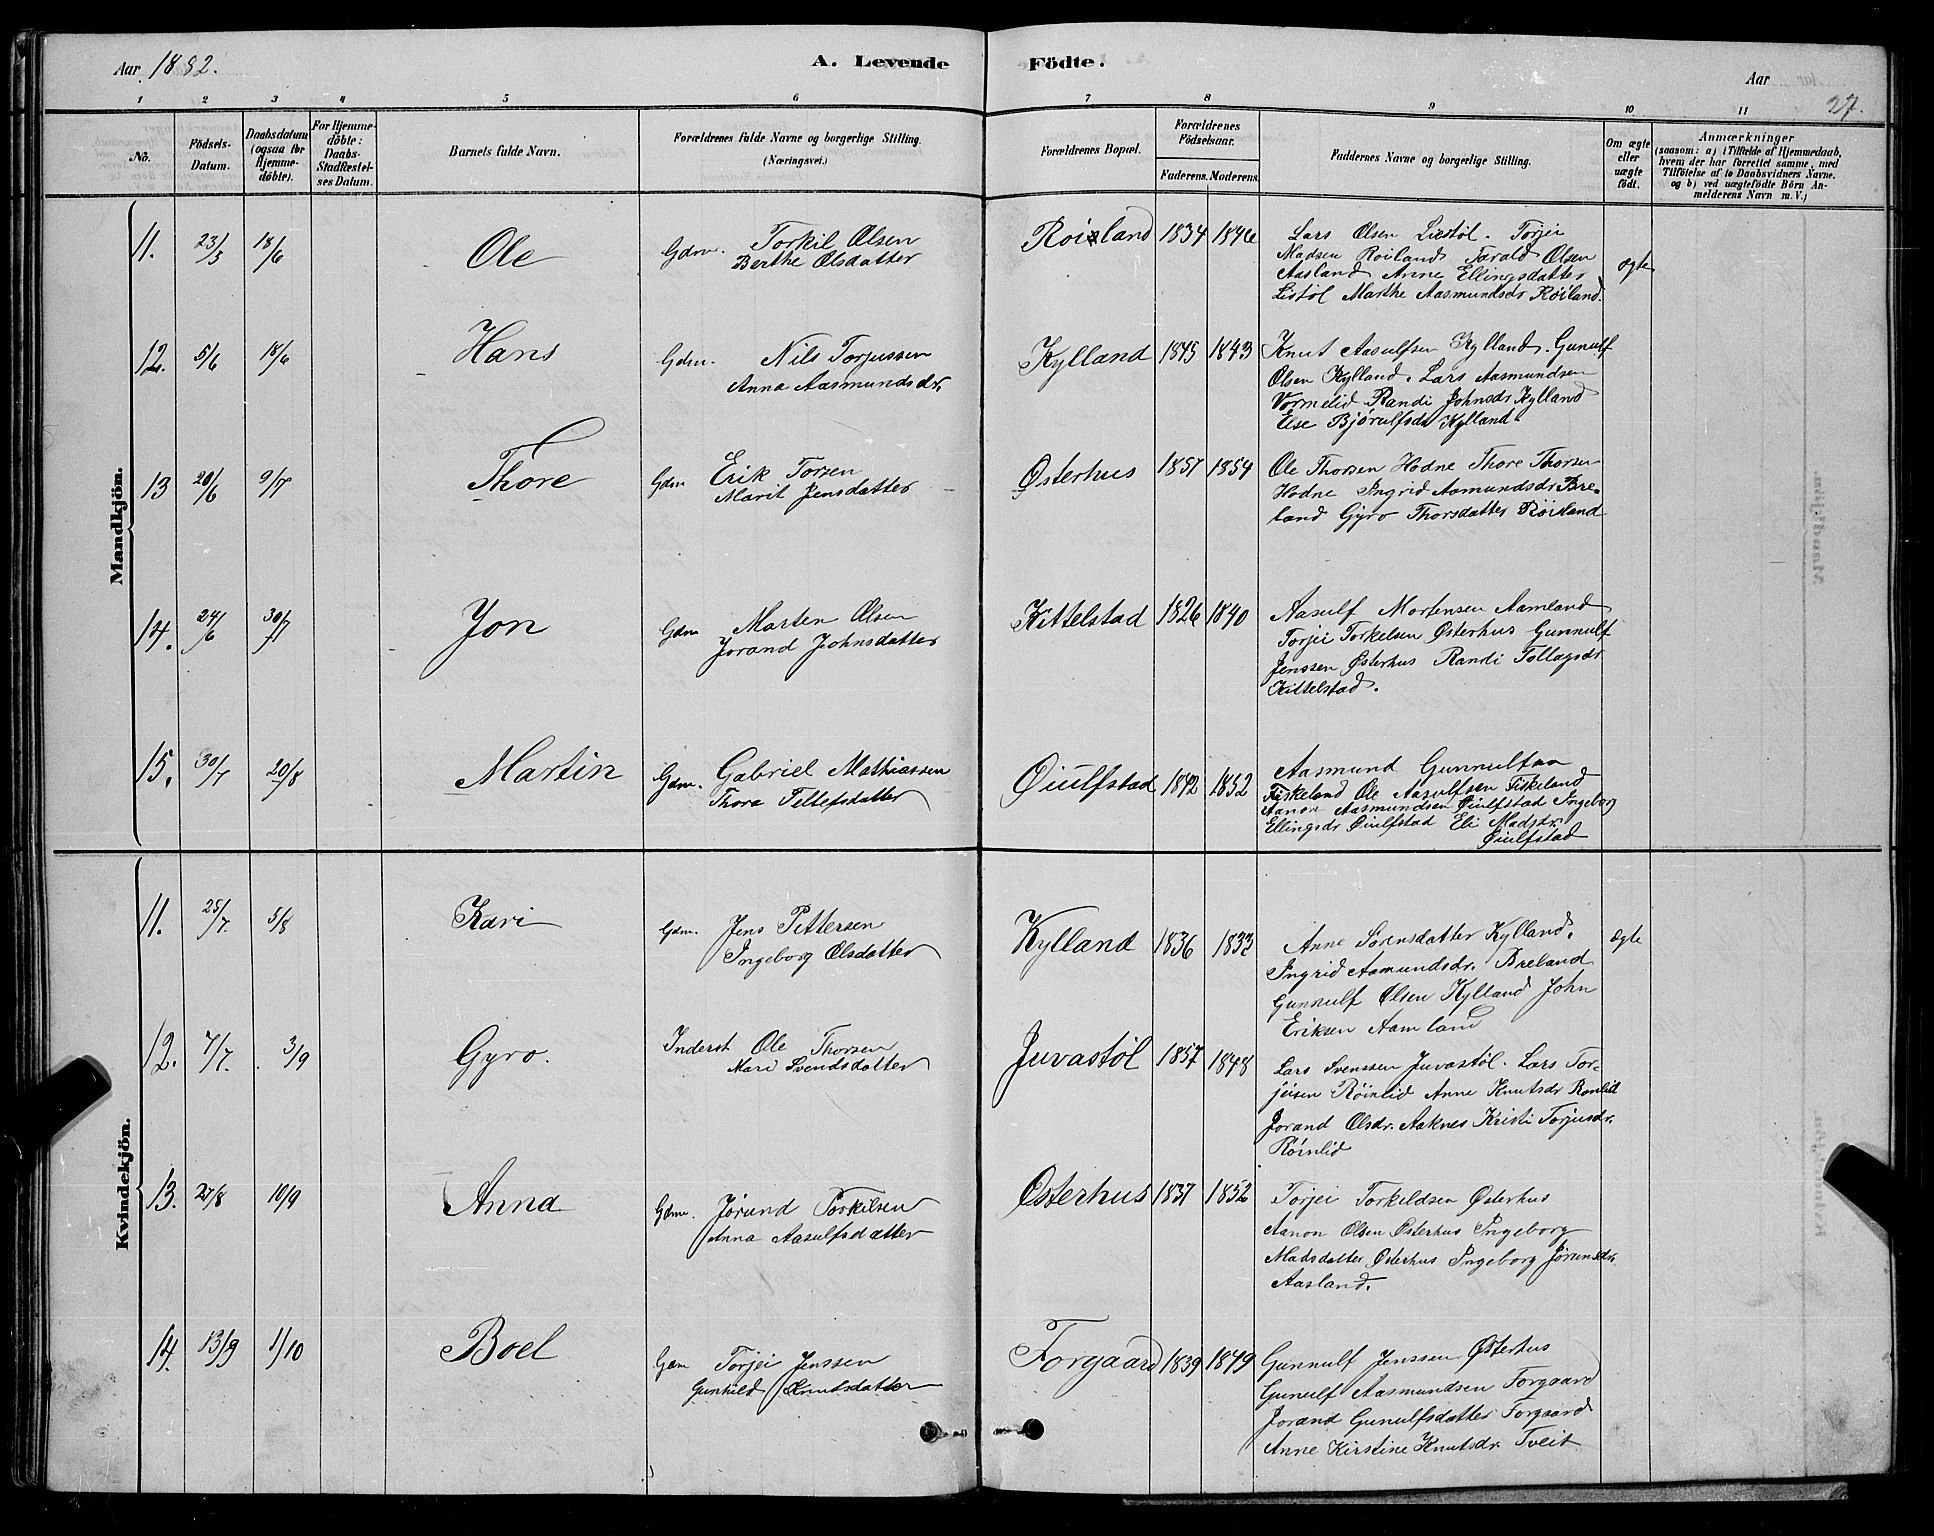 Aar 1882.
A. Levende
Födte.
Aar
27.
1 2 3 4 5 6 7 8 9 10 11
No.
Födsels-
Datum.
Daabsdatum
(ogsaa for
Hjemme-
döbte).
For Hjemme-
döbte:
Daabs-
Stadfæstel-
ses Datum.
Barnets fulde Navn.
Forældrenes fulde Navne og borgerlige Stilling.
(Næringsvei.)
Forældrenes Bopæl.
Forældrenes
Födselsaar.
Faderens. Moderens.
Faddernes Navne og borgerlige Stilling.
Om ægte
eller
uægte
födt.
Anmærkninger
(saasom: a) i Tilfælde af Hjemmedaab,
hvem der har forrettet samme, med
Tilföielse af to Daabsvidners Navne.
og b) ved uægtefödte Börn An-
melderens Navn m. V.)
Mandkjön.
11. 23/5 18/6 Ole Gdm. Torkil Olsen
Berthe Olsdatter
Röisland 1834 1846 Lars Olsen Listöl. Torjei
Madsen Röiland Tarald Olsen
Aasland Anne Ellingsdatter
Listöl Marthe Aasmundsdr Röiland.
ægte
12. 5/6 18/6 Hans Gdm. Nils Torjussen
Anna Aasmundsdr.
Kylland 1845 1843 Knut Aasulfsen Kylland. Gunulf
Olsen Kylland. Lars Aasmundsen
Vormelid Randi Johnsdr Kylland
Else Bjørulfsdr Kylland.
13 20/6 9/7 Thore Gdm Erik Torsen
Marit Jensdatter
Østerhus 1857 1854 Ole Thorsen Hodne Thore Thorsen
Hodne Ingrid Aamundsdr Bre-
land Gyro Thorsdatter Röiland
14. 24/6 30/7 Jon Gdm Morten Olsen
Jorand Johnsdatter
Kittelstad 1826 1840 Aasulf Mortensen Aamland
Torjei Torkelsen Østerhus Gunnulf
Jenssen Østerhus Randi Tollagsdr
Kittelstad.
15. 30/7 20/8 Martin Gdm. Gabriel Mathiassen
Thora Tellefsdatter
Øiulfstad 1842 1852 Aasmund Gunnulfsen
Fiskeland Ole Aasulfsen Fiskeland
Aanon Aasmundsen Øiulfstad Ingeborg
Ellingsdr Øiulfstad Eli Madsdr.
Øiulfstad
Kvindekjön.
11. 25/7. 5/8 Kari Gdm. Jens Pettersen
Ingeborg Olsdatter
Kylland 1836 1833 Anne Sörensdatter Kylland.
Ingrid Aamundsdr. Breland
Gunnulf Olsen Kylland John
Eriksen Aamland
ægte
12. 7/7. 3/9 Gyro. Inderst Ole Thorsen
Mari Svendsdatter
Juvastöl 1857 1848 Lars Svenssen Juvastöl. Lars Tor-
jeisen Röinlid Anne Knutsdr Ronlid
Jorand Olsdr. Aaknes Kristi Torjusdr.
Röinlid
13. 27/8 10/9 Anna Gdm. Jörund Torkilsen
Anna Aasulfsdatter
Østerhus 1837 1852 Torjei Torkildsen Østerhus
Aanon Olsen Østerhus Ingeborg
Madsdatter Østerhus Ingeborg Jörunsdr.
Aasland.
14. 13/9 1/10 Boel Gdm Torjei Jenssen
Gunhild Knutsdatter
Forgaard 1839 1849 Gunnulf Jenssen Østerhus
Gunulf Aasmundsen Forgaard
Jorand Gunulfsdatter Forgaard
Anne Kirstine Knutsdr. Tveit